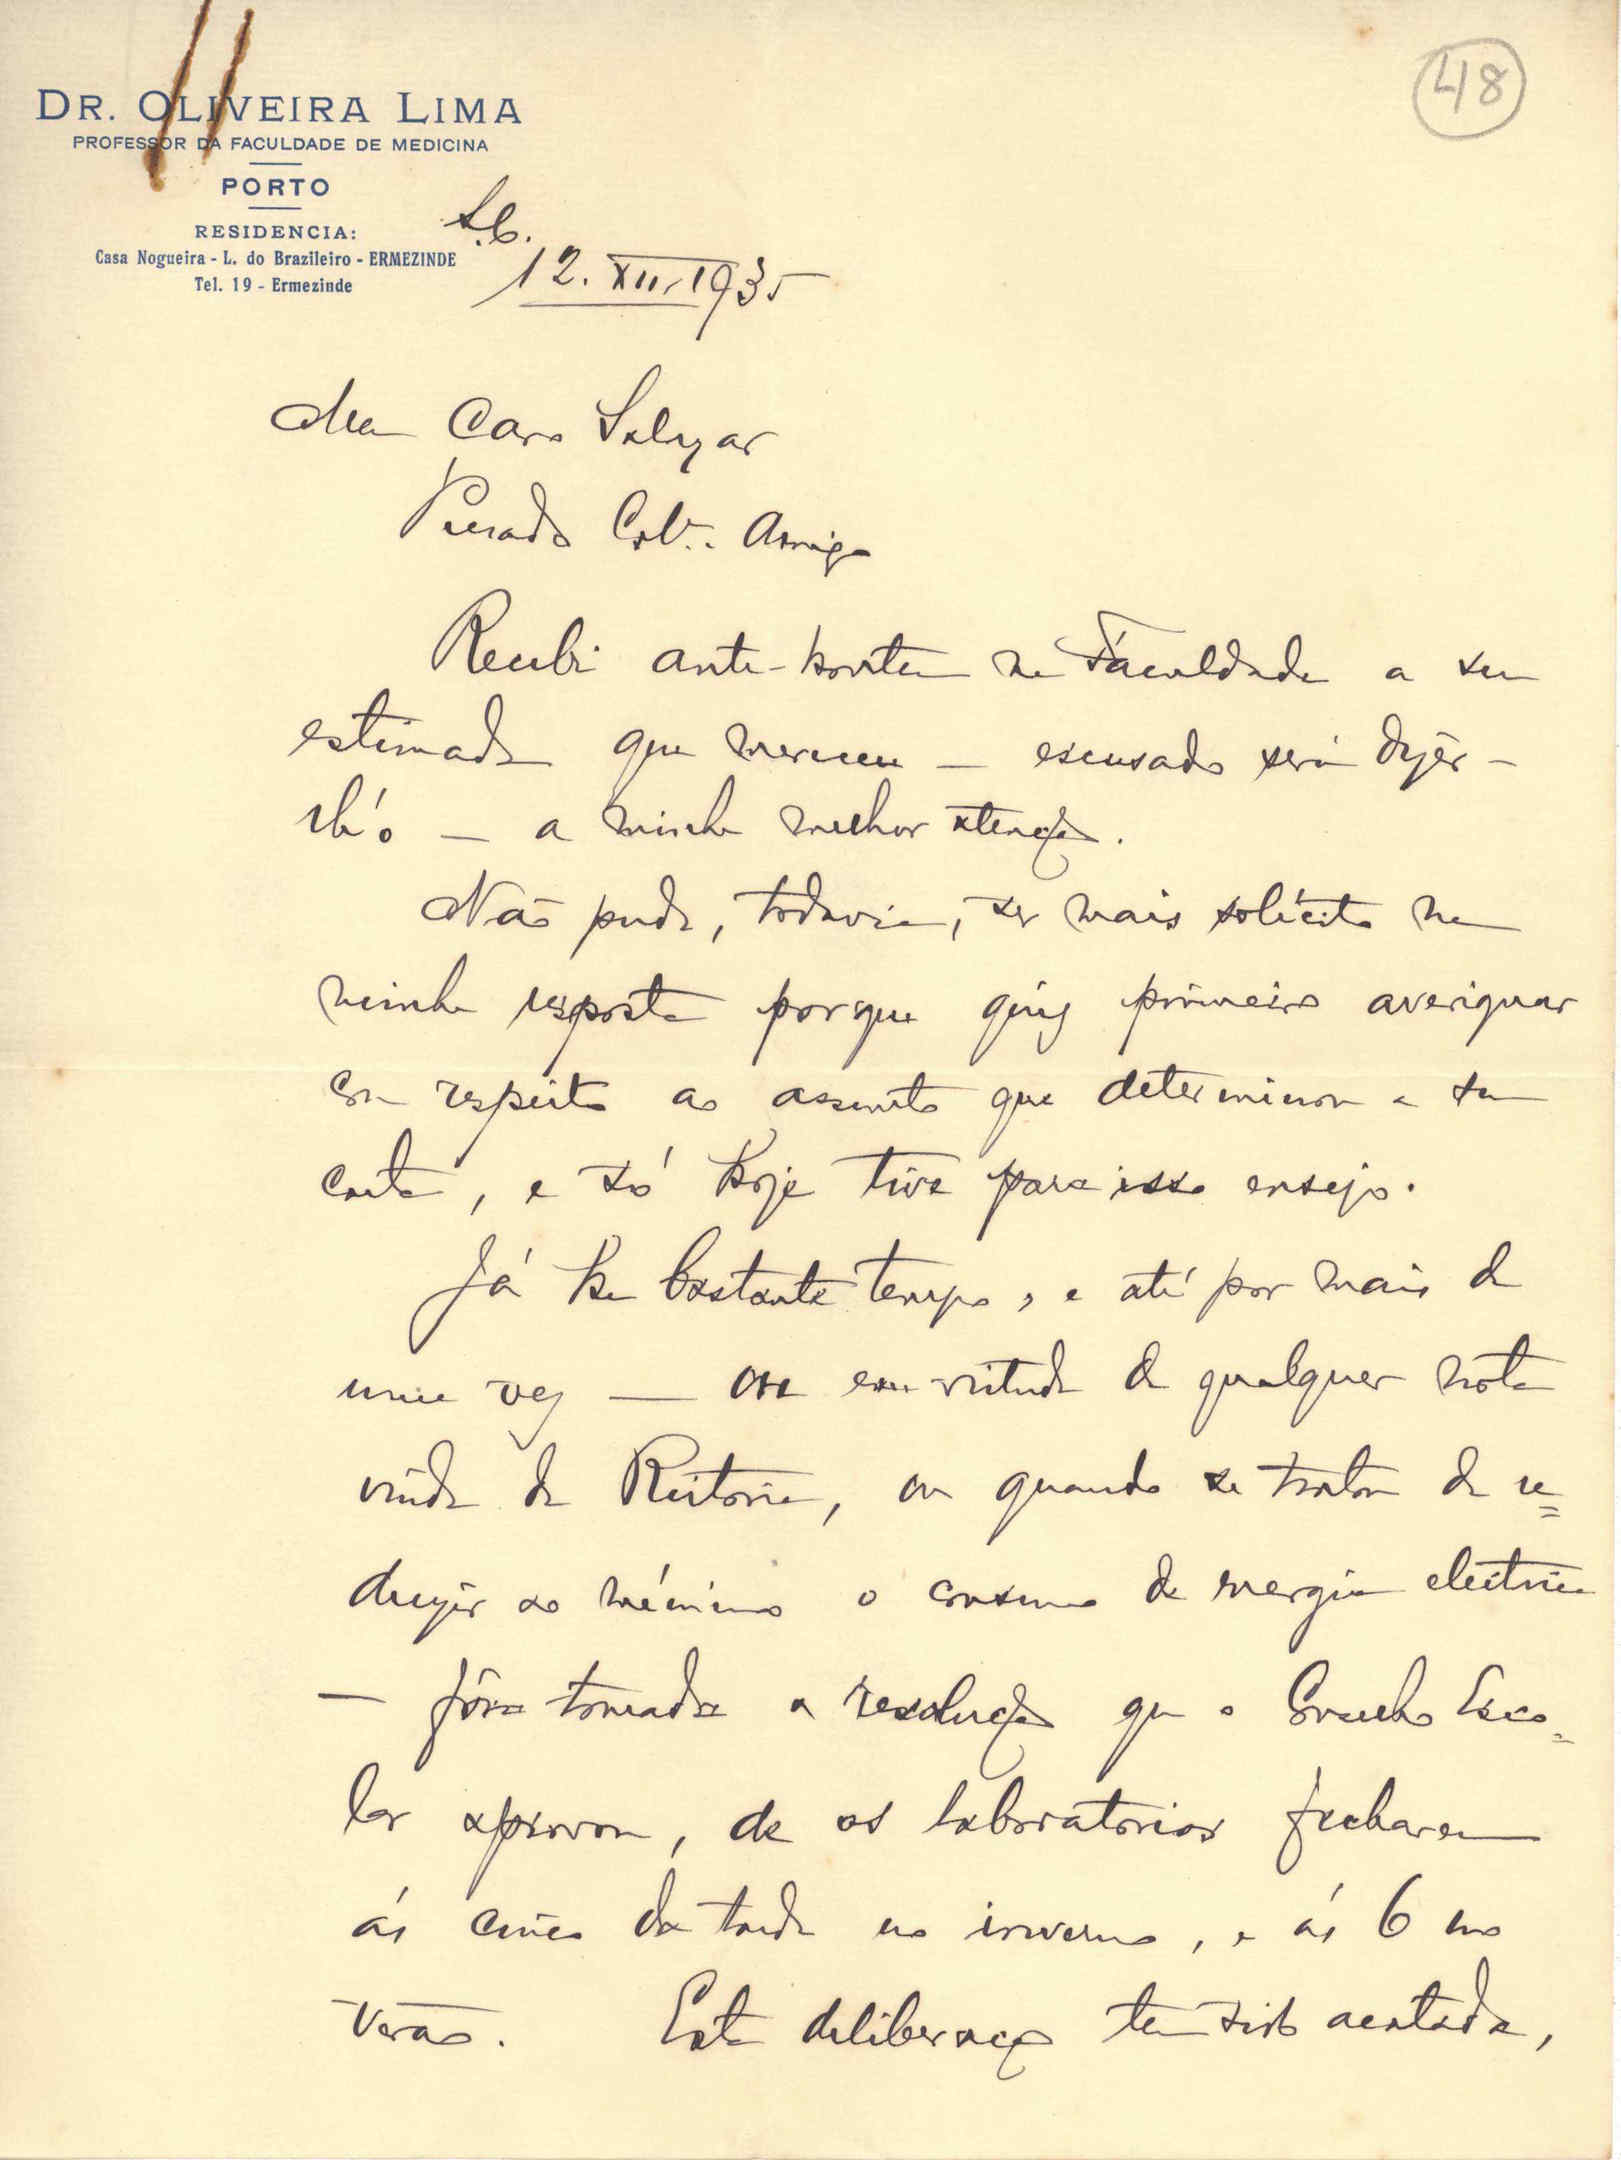 48
DR. OLIVEIRA LIMA
PROFESSOR DA FACULDADE DE MEDICINA
PORTO
RESIDENCIA:
Casa Nogueira - L. do Brazileiro - ERMEZINDE
Tel. 19 - Ermezinde
S.C.
12.XII.1935
Meu Caro Salazar
Prezado Col.ª Amigo
Recebi ante-hontem na Faculdade a sua
estimada que mereceu — escusado será dizêr-
lh'o — a minha melhor atenção.
Não pude, todavia, ser mais solícito na
minha resposta porque quiz primeiro averiguar
com respeito ao assunto que determinou a sua
carta, e só hoje tive para isso ensejo.
Já ha bastante tempo, e até por mais de
uma vez — ou em virtude de qualquer nota
vinda da Reitoria, ou quando se tratou de re=
duzir ao mínimo o consumo de energia electrica
— fôra tomada a resolução que o Conselho Esco=
lar aprovou, de os laboratorios fecharem
ás cinco da tarde no inverno, e ás 6 no
verão. Esta deliberação tem sido acatada,